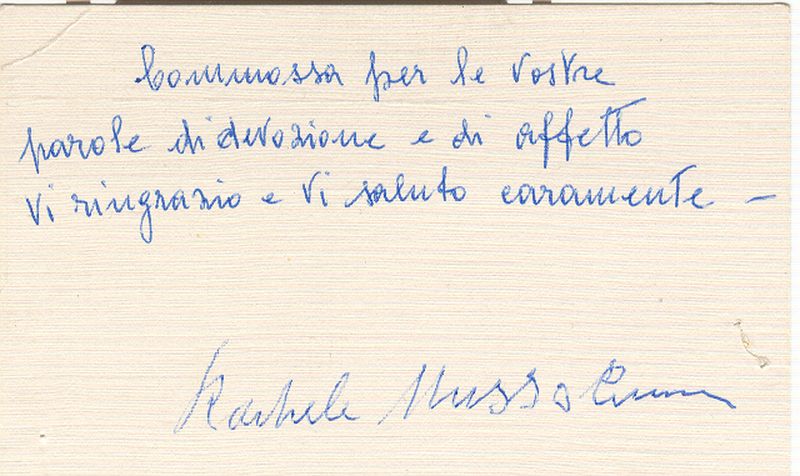 Commossa per le vostre
parole di devozione e di affetto
vi ringrazio e vi saluto caramente –
Rachele Mussolini